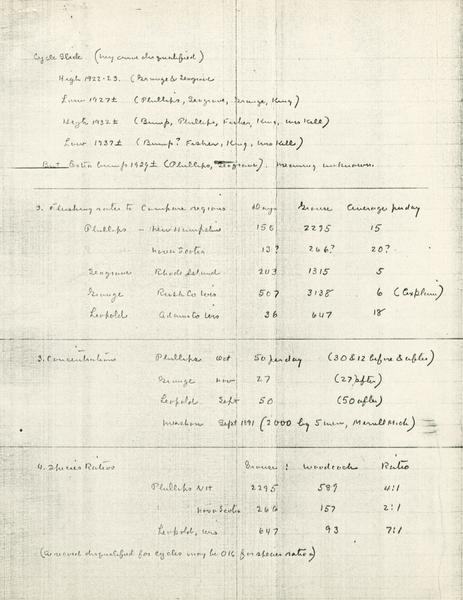 Cycle Slide (my curve disqualified)
High 1922-23. (Grange & Seagrave
Low 1927± (Phillips, Seagrave, Grange, King)
High 1932± (Bump, Phillips, Fisher, King, Wis Kill)
Low 1937± (Bump? Fisher, King, Wis Kill)
But Extra bump 1929± (Phillips, Seagrave). Meaning unknown.
Flushing rates to Compare regions Days Grouse Average per day
Phillips - New Hampshire 156 2295 15
Nova Scotia 13? 266? 20?
Seagrave Rhode Island 203 1315 5
Grange Rusk Co Wis 507 3138 6 (Explain)
Leopold Adams Co Wis 36 647 18
3. Concentrations Phillips Oct 50 per day (30 & 12 before & after)
Grange Nov 27 (27 after)
Leopold Sept 50 (50 after)
Sept 1891 (2000 by 5 men, Merrill Mich)
4. Species Ratios Grouse : Woodcock Ratio
Phillips NH 2295 589 4:1
Nova Scotia 266 157 2:1
Leopold, Wis 647 93 7:1
(A record disqualified for cycles may be OK for species ratios)